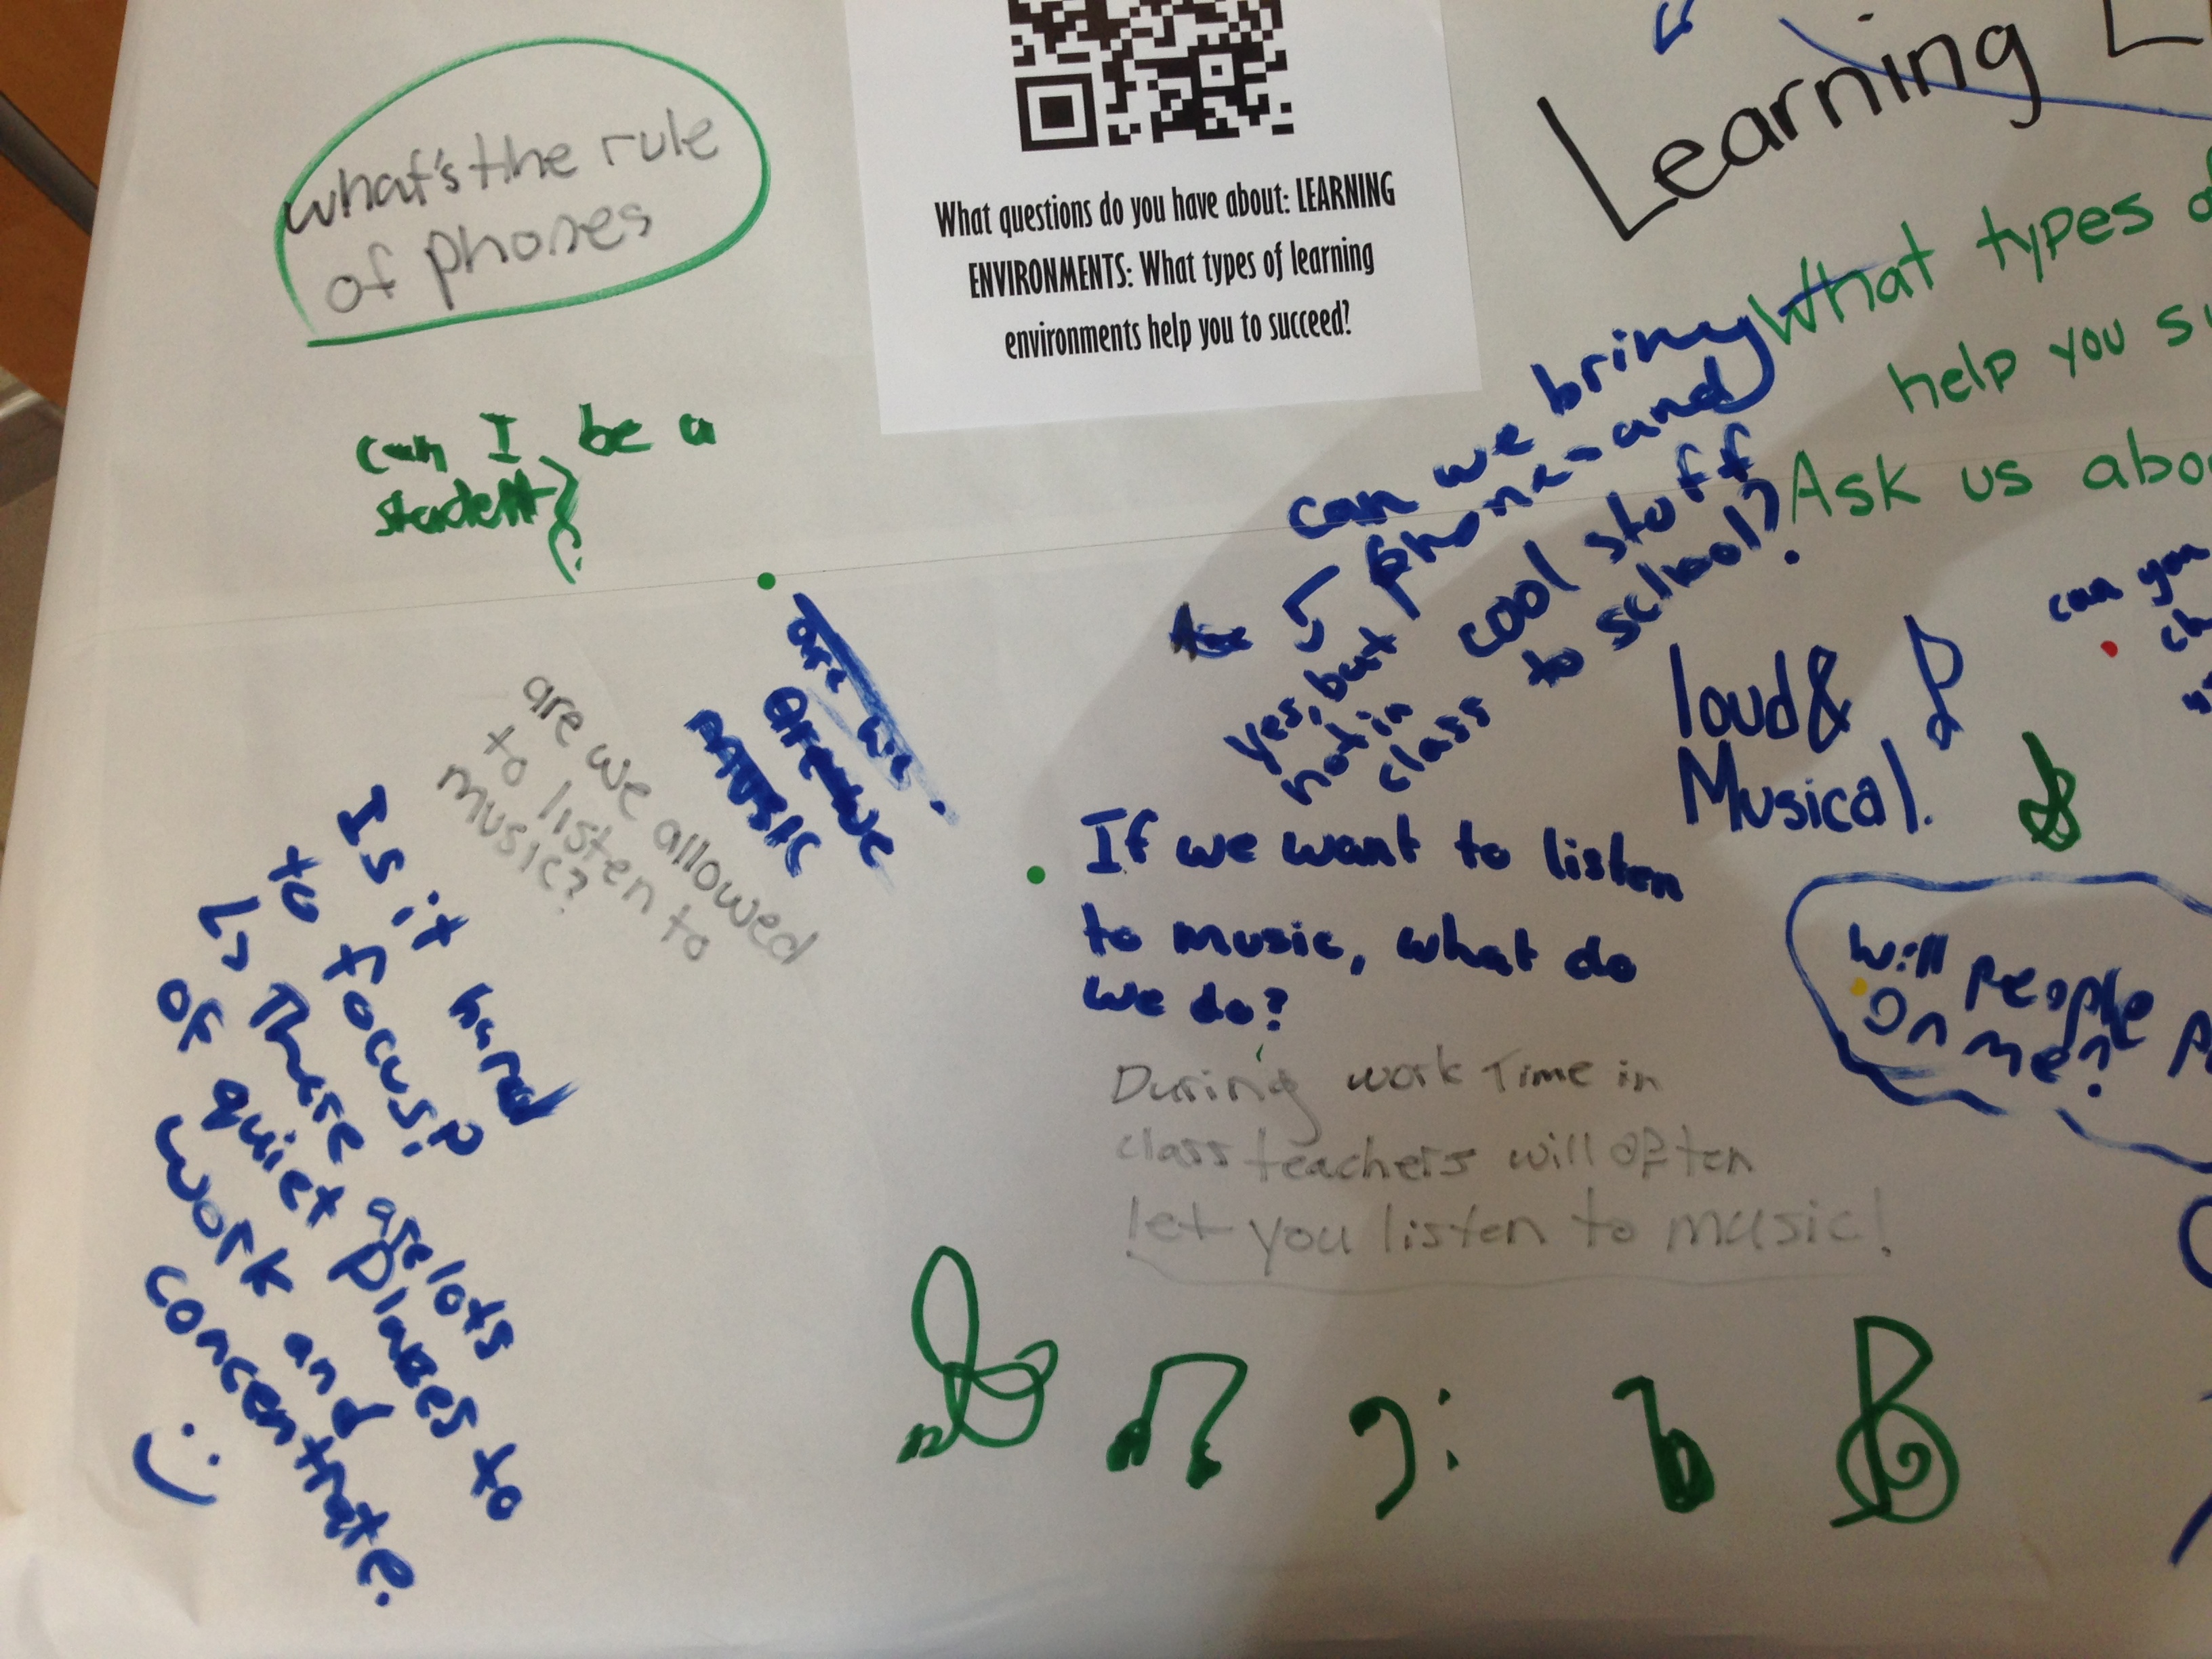 what's the rule
of phones
What questions do you have about: LEARNING
ENVIRONMENTS: What types of learning
environments help you to succeed?
Learning
What types
help you
Ask us
can I be a
student?
can we bring
phone and
cool stuff
to school?
yes, but
not in
class
loud &
Musical.
can you
are we
MUSIC
are we allowed
to listen to
music?
Is it hard
to focus?
There are lots
of quiet places to
work and
concentrate.
If we want to listen
to music, what do
we do?
During work Time in
class teachers will often
let you listen to music!
will people
on me?